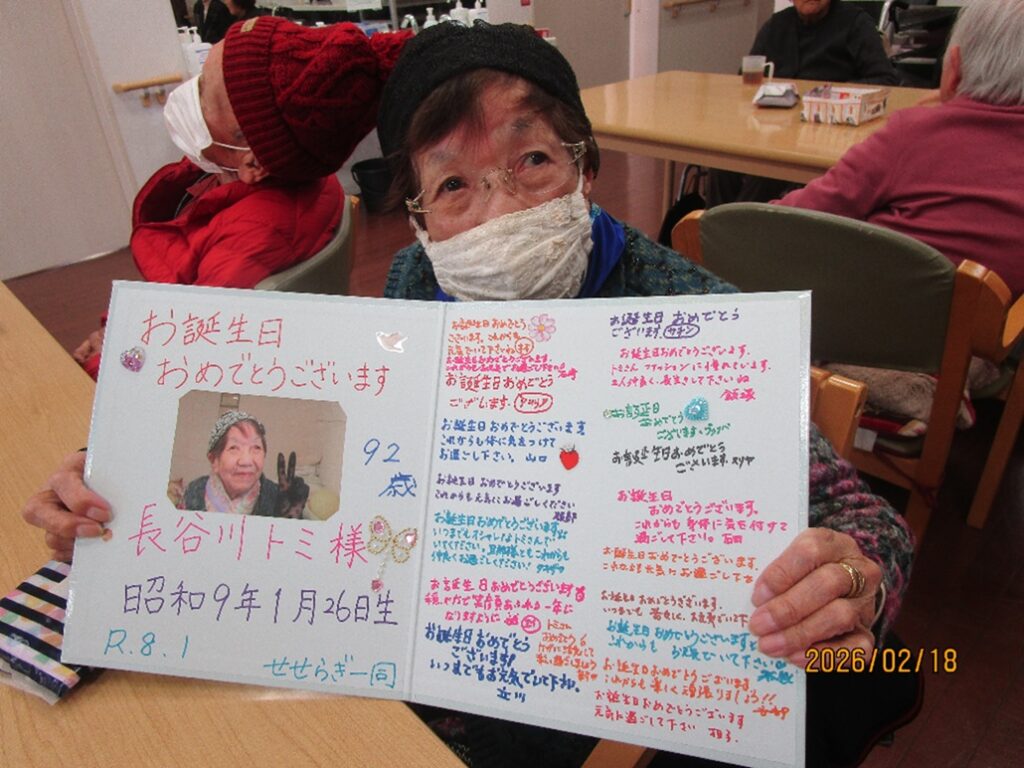 お誕生日
おめでとうございます
92
歳
長谷川トミ様
昭和9年1月26日生
R.8.1
せせらぎ一同
お誕生日おめでとう
ございます。これからも
元気でいて下さいね
お誕生日おめでとうございます。
お誕生日おめでとう
ございます。
お誕生日おめでとうございます
これからも体に気をつけて
お過し下さい。山口
お誕生日おめでとうございます
これからも元気にお過ごしください
お誕生日おめでとうございます。
いつまでもオシャレなトミさんで
いてください。旦那様ともこれからも
仲良くお過ごし下さい!
お誕生日おめでとうございます
穏やかで笑顔あふれる一年に
なりますように
トミさん
おめでとう
お誕生日おめでとう
ございます!
いつまでもお元気でして下さい。
立川
お誕生日おめでとう
ございます。
お誕生日おめでとうございます。
トミさん ファッションに憧れています。
2人仲良く、長生きして下さいね
飯塚
お誕生日
おめでとう
ございます。
お誕生日おめでとう
ございます。
お誕生日
おめでとうございます。
これからも身体に気を付けて
過ごし下さい。石田
お誕生日おめでとうございます。
これからも元気にお過ごし下さ
お誕生日おめでとうございます。
いつまでも
お誕生日おめでとうございます
これからもお元気でいて下さい
お誕生日おめでとうございます
これからも楽しく頑張りましょう!!
お誕生日おめでとうございます
元気に過ごして下さい
2026/02/18